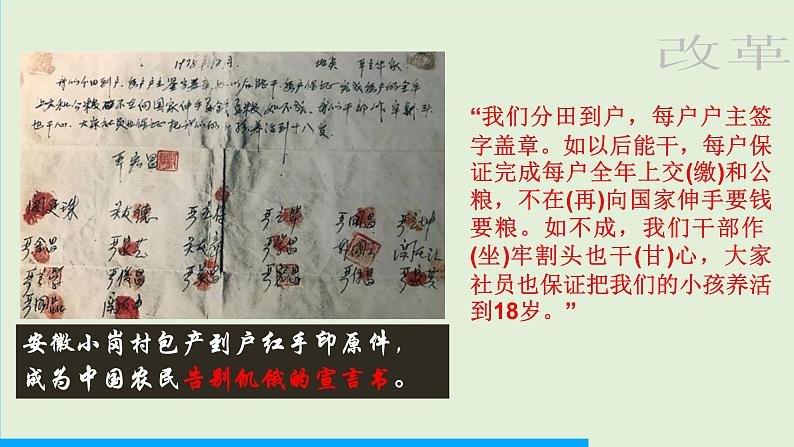 改革
1978年12月 地点 严立华家
我们分田到户,每户户主签字盖章,如以后能干,每户保证完成每户的全年
上交和公粮,不在向国家伸手要钱要粮,如不成,我们干部作牢割头
也干心,大家社员也保证把我们的小孩养活到十八岁。
严宏昌
关廷珠
“我们分田到户,每户户主签
字盖章。如以后能干,每户保
证完成每户全年上交(缴)和公
粮,不在(再)向国家伸手要钱
要粮。如不成,我们干部作
(坐)牢割头也干(甘)心,大家
社员也保证把我们的小孩养活
到18岁。”
安徽小岗村包产到户红手印原件,
成为中国农民告别饥饿的宣言书。